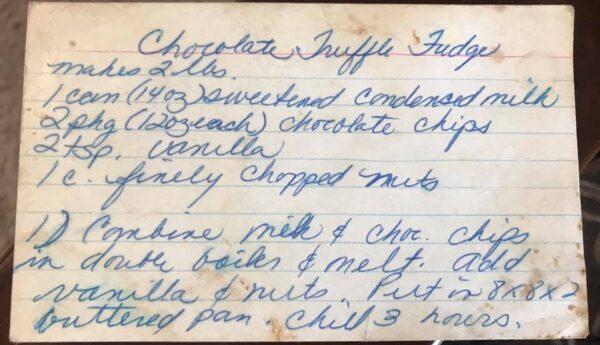 Chocolate Truffle Fudge
makes 2 lbs.
1 can (14oz) sweetened condensed milk
2 pkg (12oz each) chocolate chips
2 tsp. vanilla
1 c. finely chopped nuts
1) Combine milk & choc. chips
in double boiler & melt. Add
vanilla & nuts. Put in 8x8x2
buttered pan. Chill 3 hours.